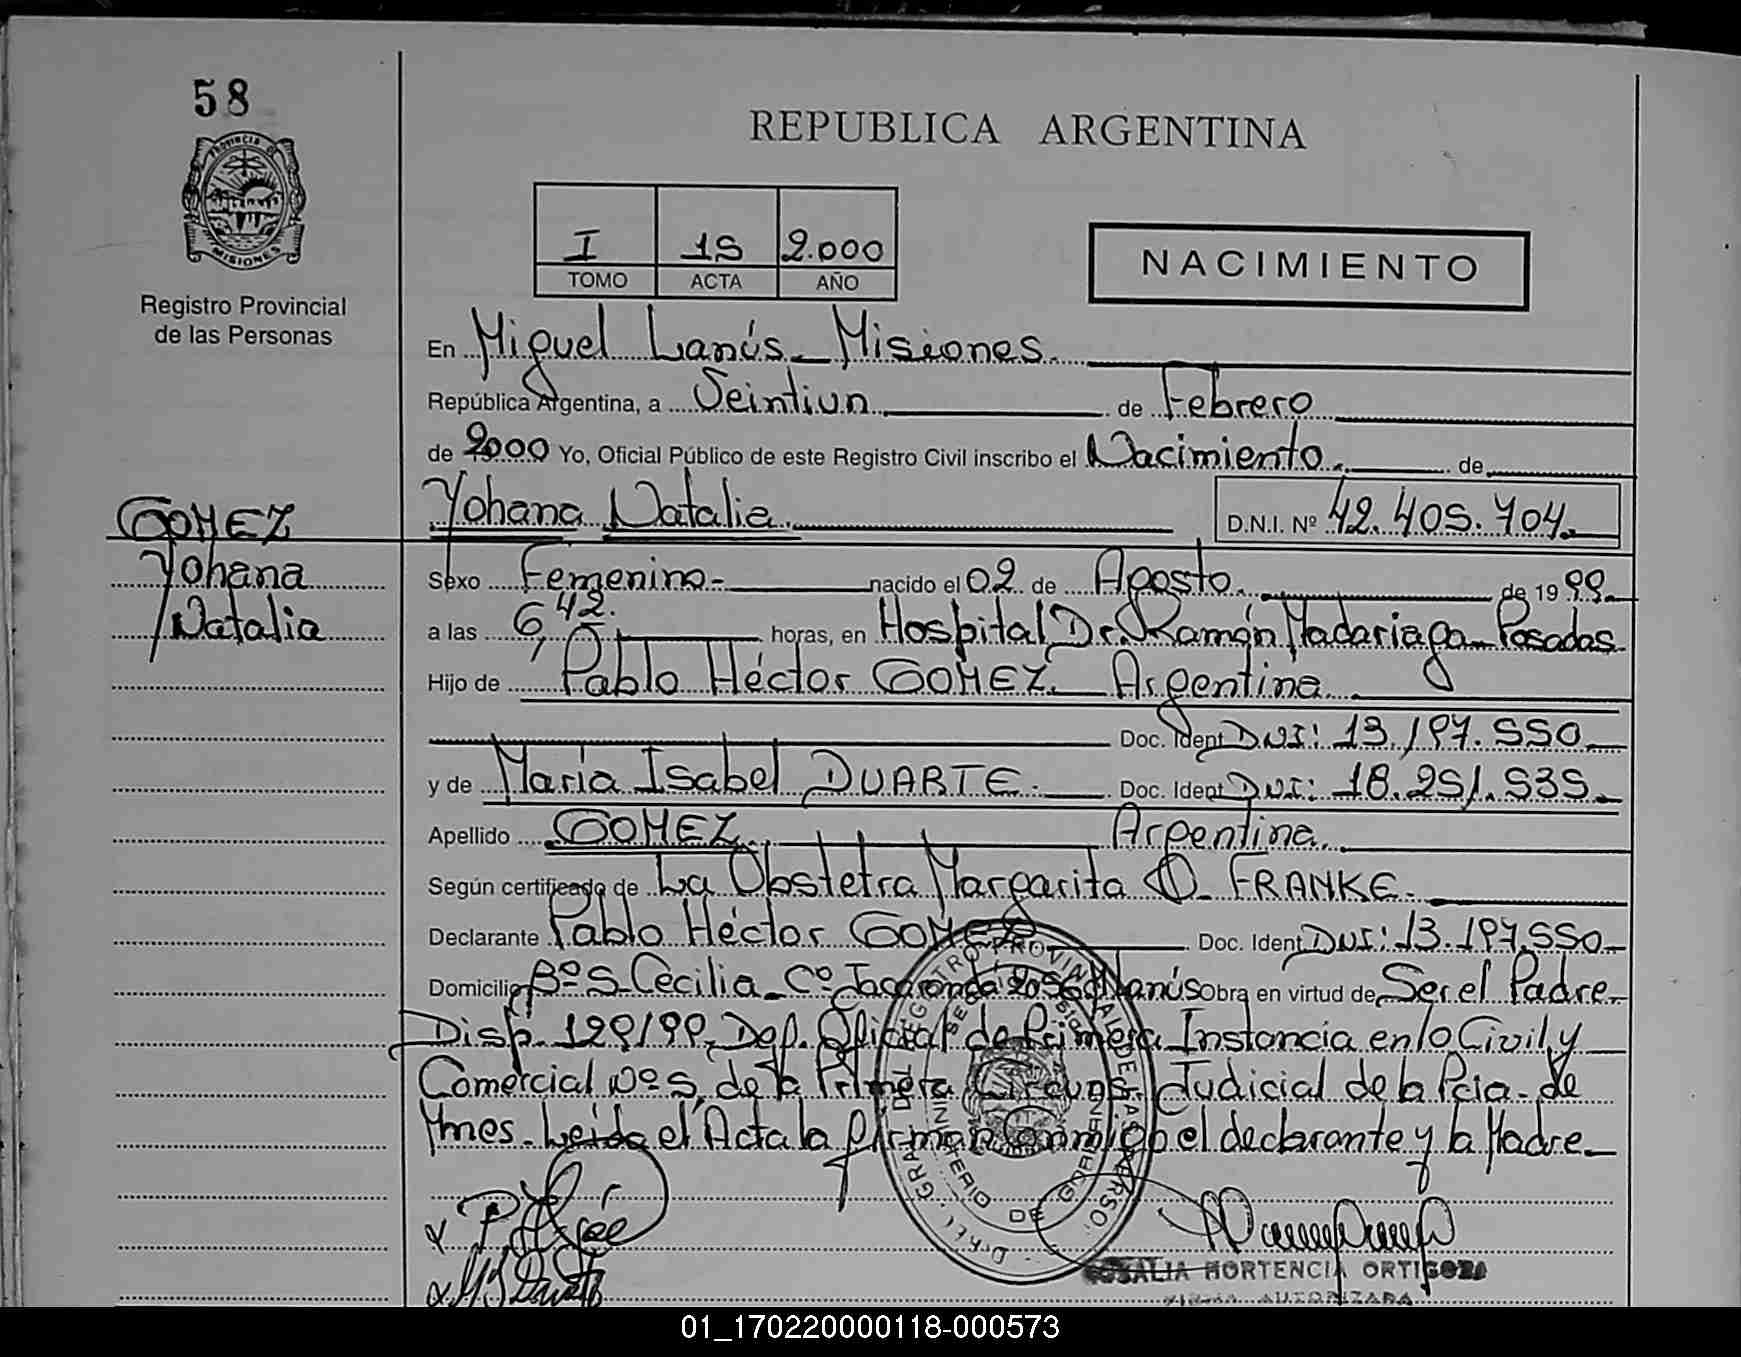 58
REPUBLICA ARGENTINA
PROVINCIA DE
MISIONES
I 15 2.000
TOMO ACTA AÑO
NACIMIENTO
Registro Provincial
de las Personas
En Miguel Lanús - Misiones.
República Argentina, a Veintiun de Febrero
de 2000 Yo, Oficial Público de este Registro Civil inscribo el Nacimiento. de
GOMEZ
Yohana
Natalia
Yohana Natalia. D.N.I. Nº 42.405.704.
Sexo Femenino- nacido el 02 de Agosto. de 1999.
a las 6,42. horas, en Hospital Dr. Ramón Madariaga - Posadas.
Hijo de Pablo Héctor GOMEZ. Argentina.
Doc. Ident DNI: 13.197.550.
y de María Isabel DUARTE. Doc. Ident DNI: 18.251.535.
Apellido GOMEZ. Argentina.
Según certificado de La Obstetra Margarita O. FRANKE.
Declarante Pablo Héctor GOMEZ Doc. Ident DNI: 13.197.550.
Domicilio Bº S. Cecilia - Cº Jacaranda 2056 Lanús Obra en virtud de Ser el Padre-
Disp. 129/99, Def. Oficial de Primera Instancia en lo Civil y
Comercial Nº 5, de la Primera Circuns. Judicial de la Pcia. de
Mnes. Leida el Acta la firman conmigo el declarante y la Madre-
ROSALIA HORTENCIA ORTIGOZA
FIRMA AUTORIZADA
01_170220000118-000573